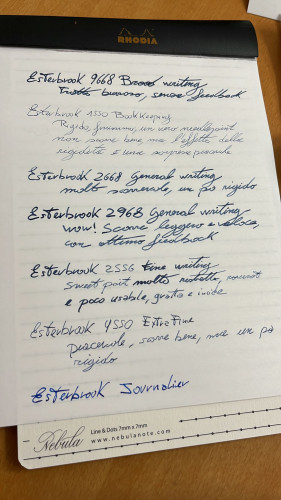 RHODIA
Esterbrook 9668 Broad writing
Tratto buono, senza feedback
Esterbrook 1550 Bookkeeping
Rigido, finissimo, un vero needlepoint
non scorre bene ma l'effetto della
rigidità è una sorpresa piacevole
Esterbrook 2668 General writing
molto scorrevole, un po rigido
Esterbrook 2968 General writing
wow! Scorre leggero e veloce,
con ottimo feedback
Esterbrook 2556 fine writing
Sweet spot molto ristretto,
e poco usabile, gratta e incide
Esterbrook 4550 Extra Fine
piacevole, scorre bene, ma un po
rigido
Esterbrook Journalier
Nebula
Line & Dots 7mm x 7mm
www.nebulanote.com